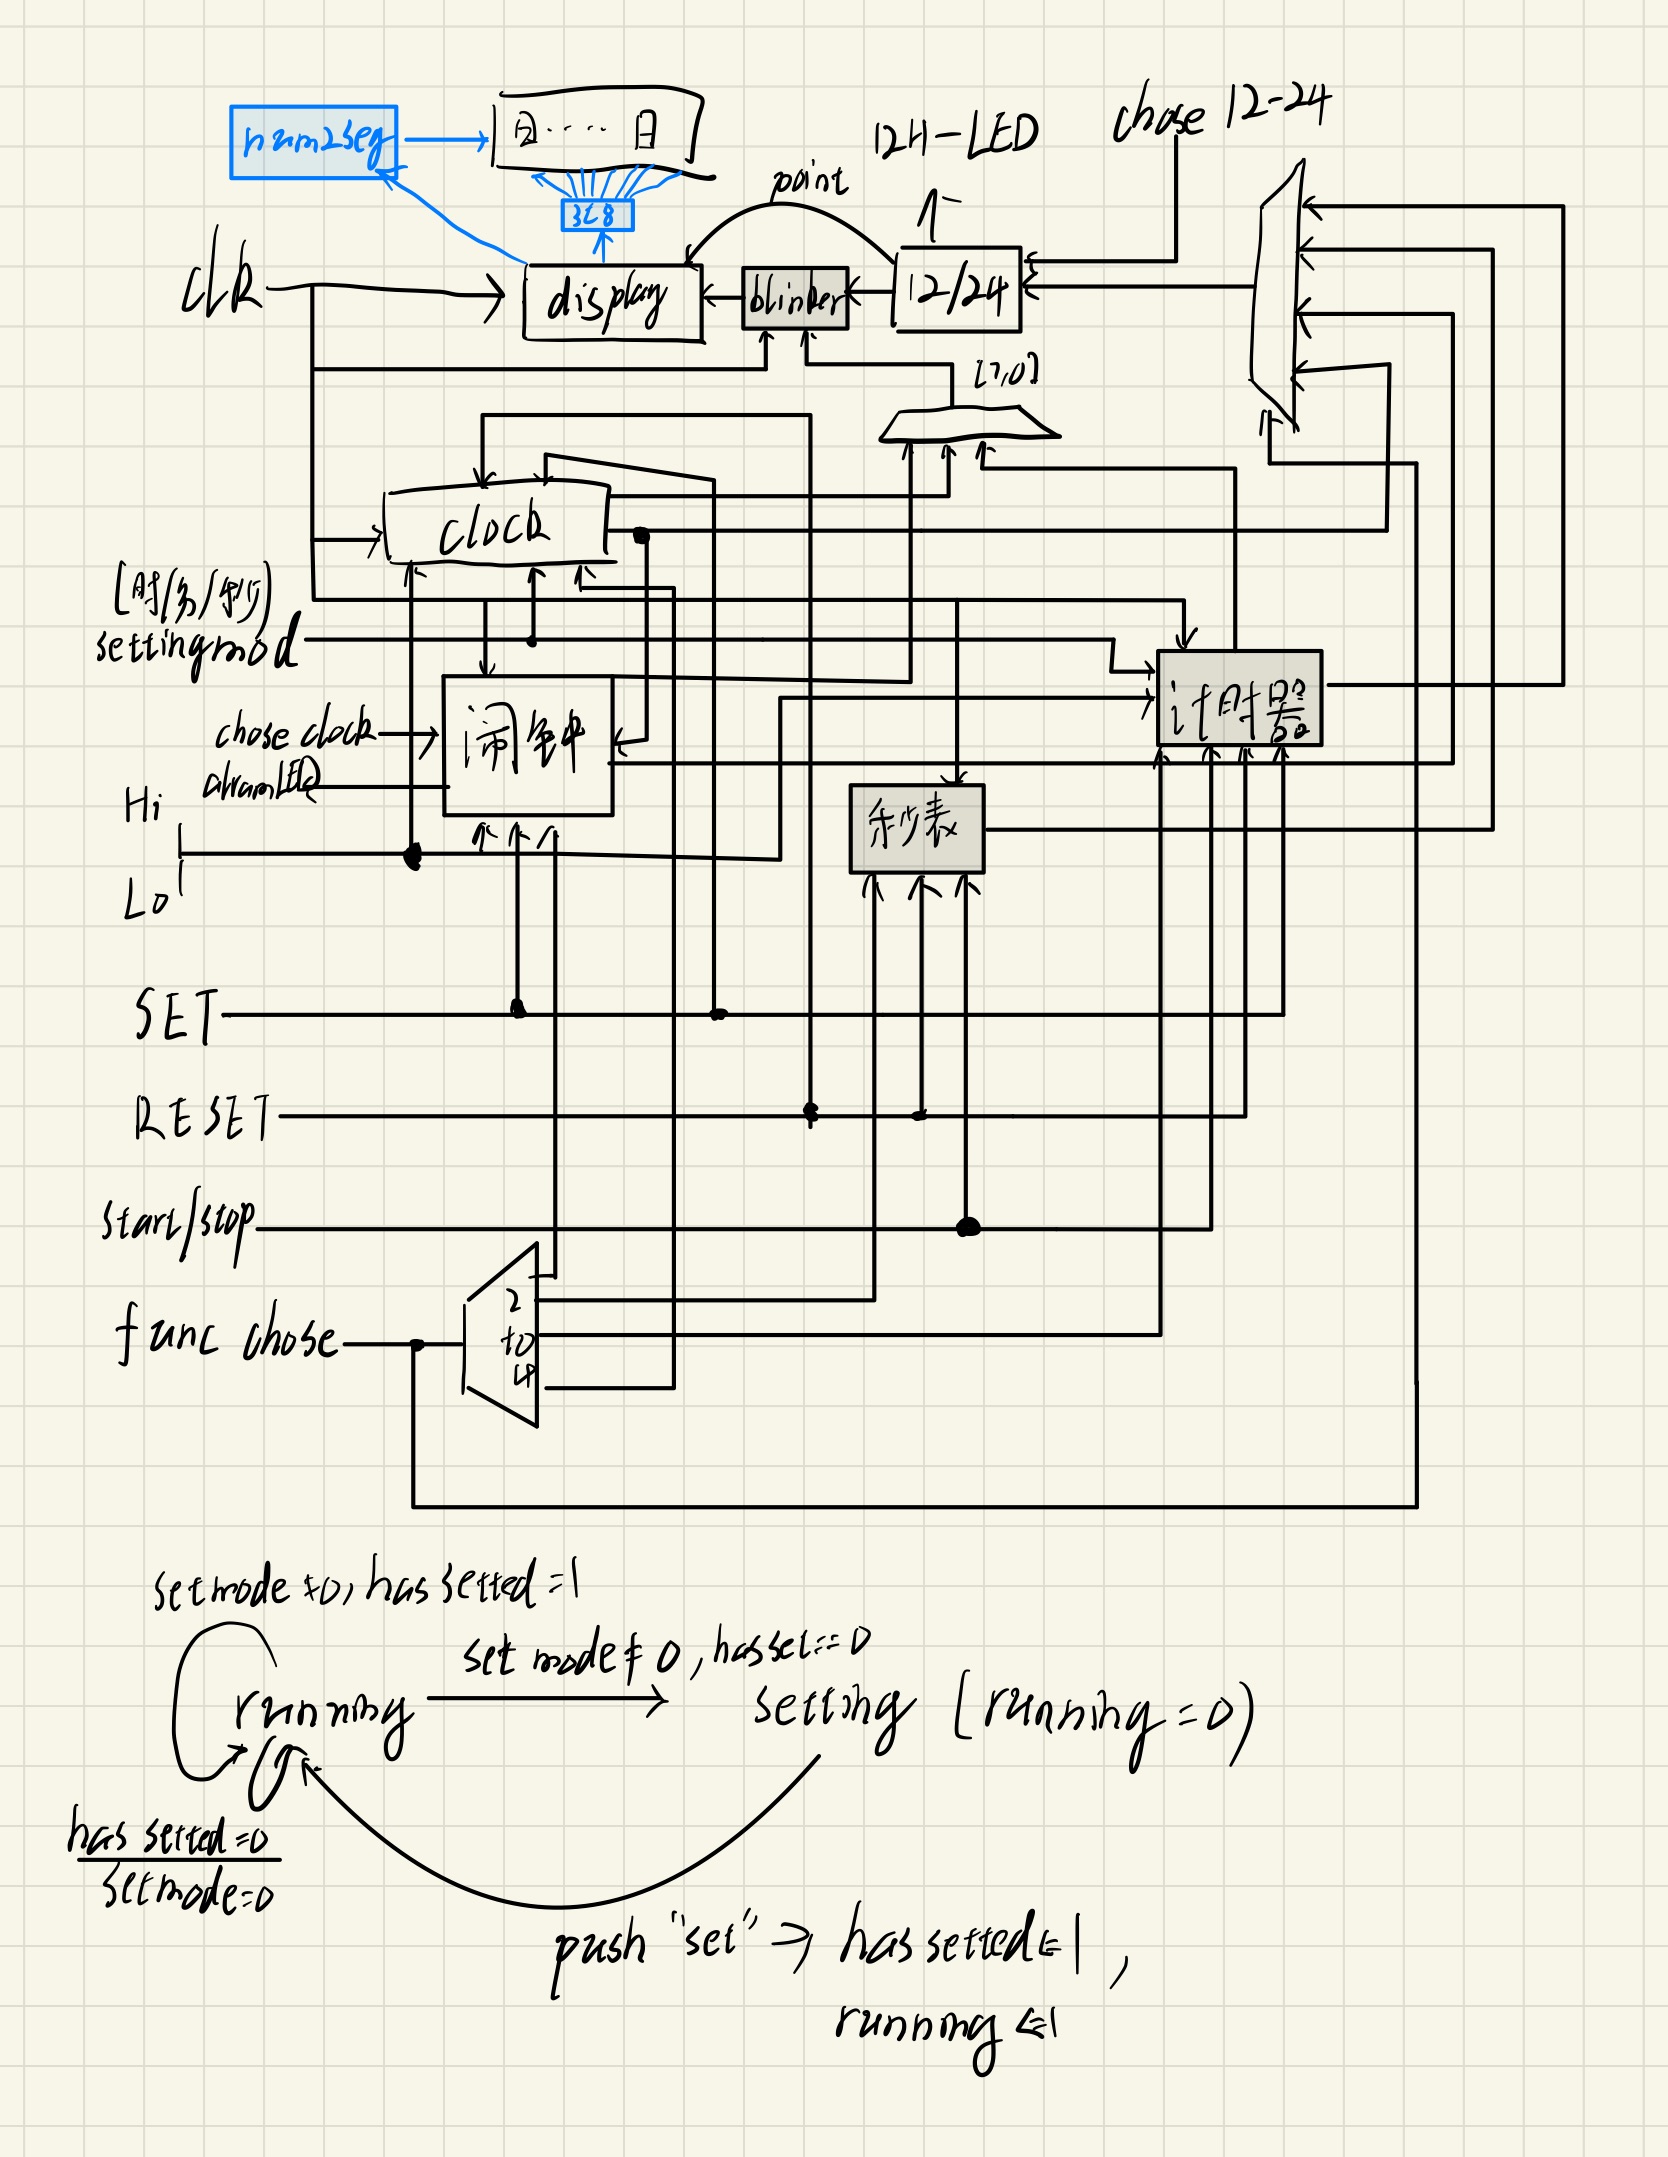 num2seg
日 ···· 日
3t8
point
12H-LED
chose 12-24
clk
display
blinker
12/24
[7,0]
clock
[时/分/秒]
settingmod
闹钟
计时器
chose clock
alramLED
Hi
Lo
秒表
SET
RESET
start/stop
func chose
2
to
4
setmode≠0, has setted=1
set mode≠0, hasset==0
running
setting [running=0)
has setted=0
setmode=0
push "set" → has setted⇐1,
running⇐1